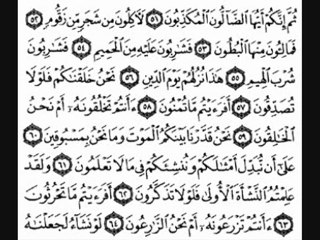 ثُمَّ إِنَّكُمْ أَيُّهَا ٱلضَّآلُّونَ ٱلْمُكَذِّبُونَ ٥١ لَـَٔاكِلُونَ مِن شَجَرٍ مِّن زَقُّومٍ ٥٢
فَمَالِـُٔونَ مِنْهَا ٱلْبُطُونَ ٥٣ فَشَٰرِبُونَ عَلَيْهِ مِنَ ٱلْحَمِيمِ ٥٤ فَشَٰرِبُونَ
شُرْبَ ٱلْهِيمِ ٥٥ هَٰذَا نُزُلُهُمْ يَوْمَ ٱلدِّينِ ٥٦ نَحْنُ خَلَقْنَٰكُمْ فَلَوْلَا
تُصَدِّقُونَ ٥٧ أَفَرَءَيْتُم مَّا تُمْنُونَ ٥٨ ءَأَنتُمْ تَخْلُقُونَهُۥٓ أَمْ نَحْنُ
ٱلْخَٰلِقُونَ ٥٩ نَحْنُ قَدَّرْنَا بَيْنَكُمُ ٱلْمَوْتَ وَمَا نَحْنُ بِمَسْبُوقِينَ ٦٠
عَلَىٰٓ أَن نُّبَدِّلَ أَمْثَٰلَكُمْ وَنُنشِئَكُمْ فِى مَا لَا تَعْلَمُونَ ٦١ وَلَقَدْ
عَلِمْتُمُ ٱلنَّشْأَةَ ٱلْأُولَىٰ فَلَوْلَا تَذَكَّرُونَ ٦٢ أَفَرَءَيْتُم مَّا تَحْرُثُونَ
٦٣ ءَأَنتُمْ تَزْرَعُونَهُۥٓ أَمْ نَحْنُ ٱلزَّٰرِعُونَ ٦٤ لَوْ نَشَآءُ لَجَعَلْنَٰهُ